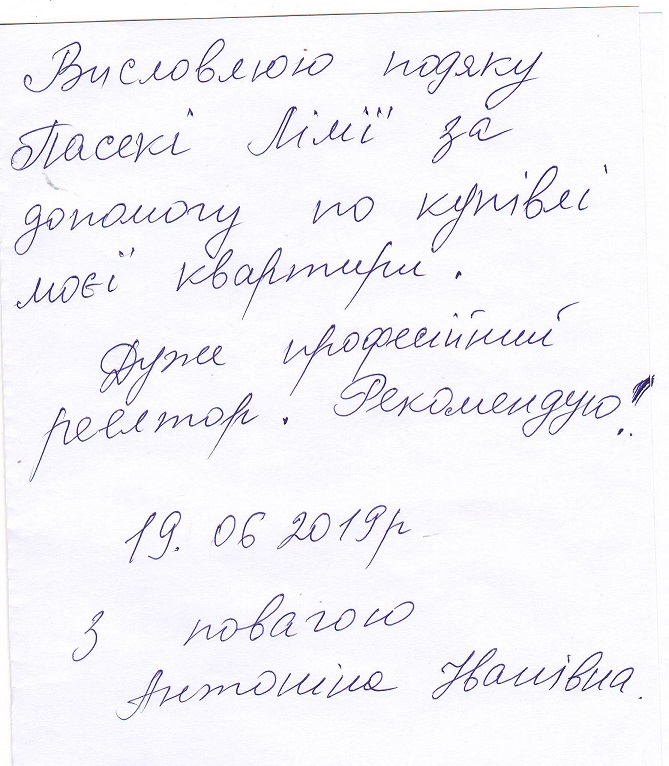 Висловлюю подяку
Пасекі Лімії за
допомогу по купівлі
моєї квартири.
Дуже професійний
ріелтор. Рекомендую!
19. 06 2019р
З повагою
Антоніна Іванівна.